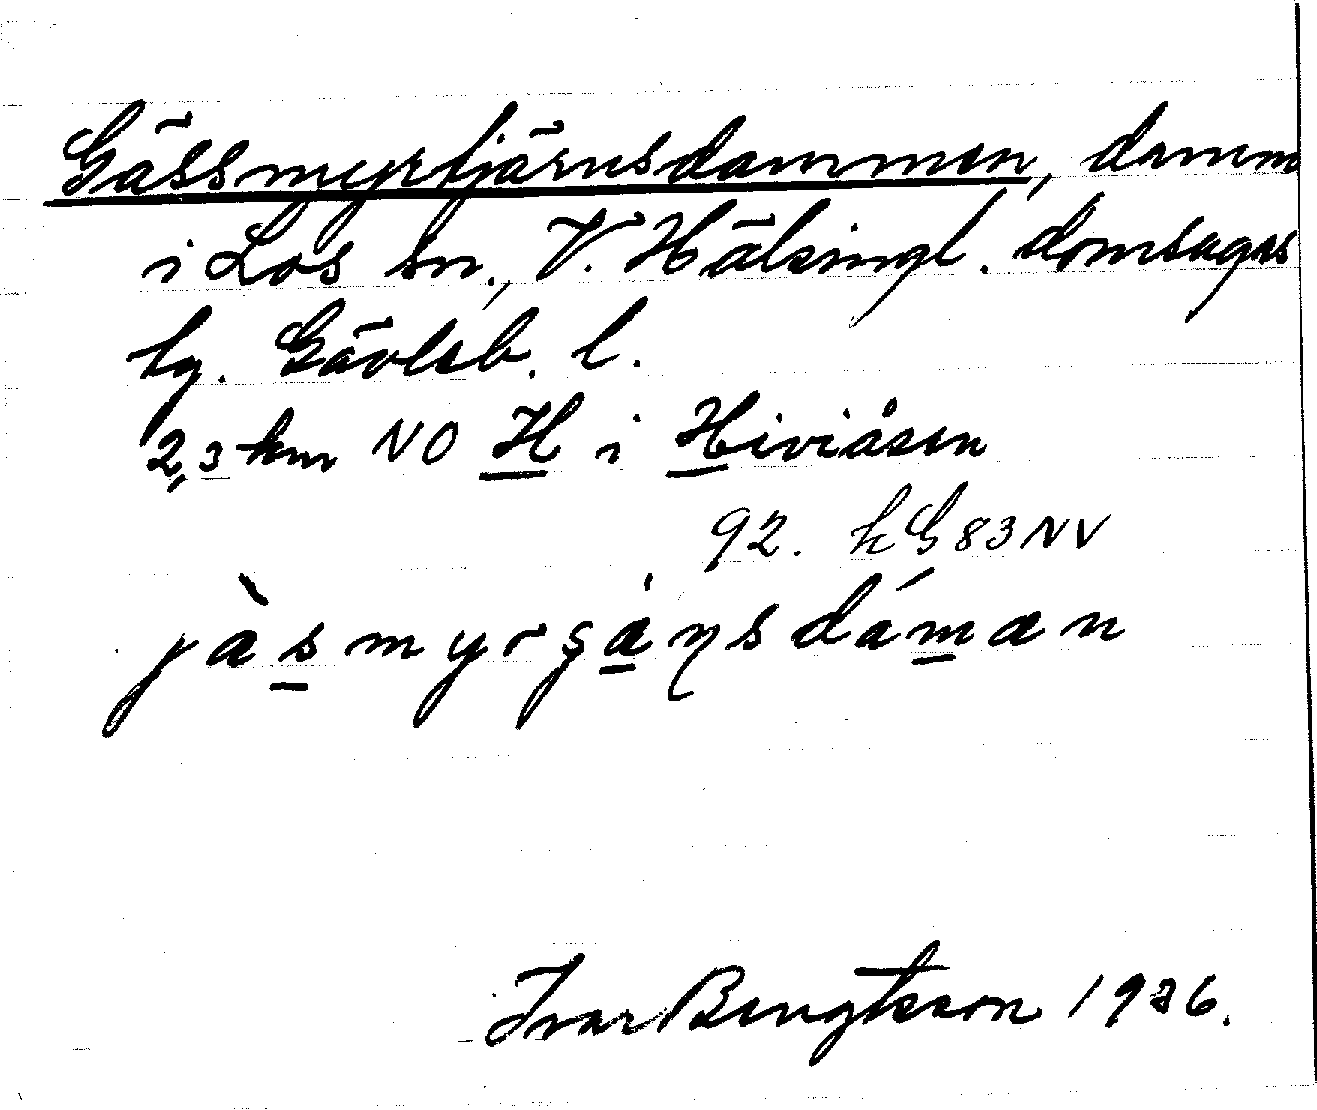 Gässmyrtjärnsdammen, damm
i Los sn., V. Hälsingl. domsagas
tg. Gävleb. l.
2,3 km NO H i Hiviåsen
92. kG 83 NV
Ivar Bengtsson 1936.